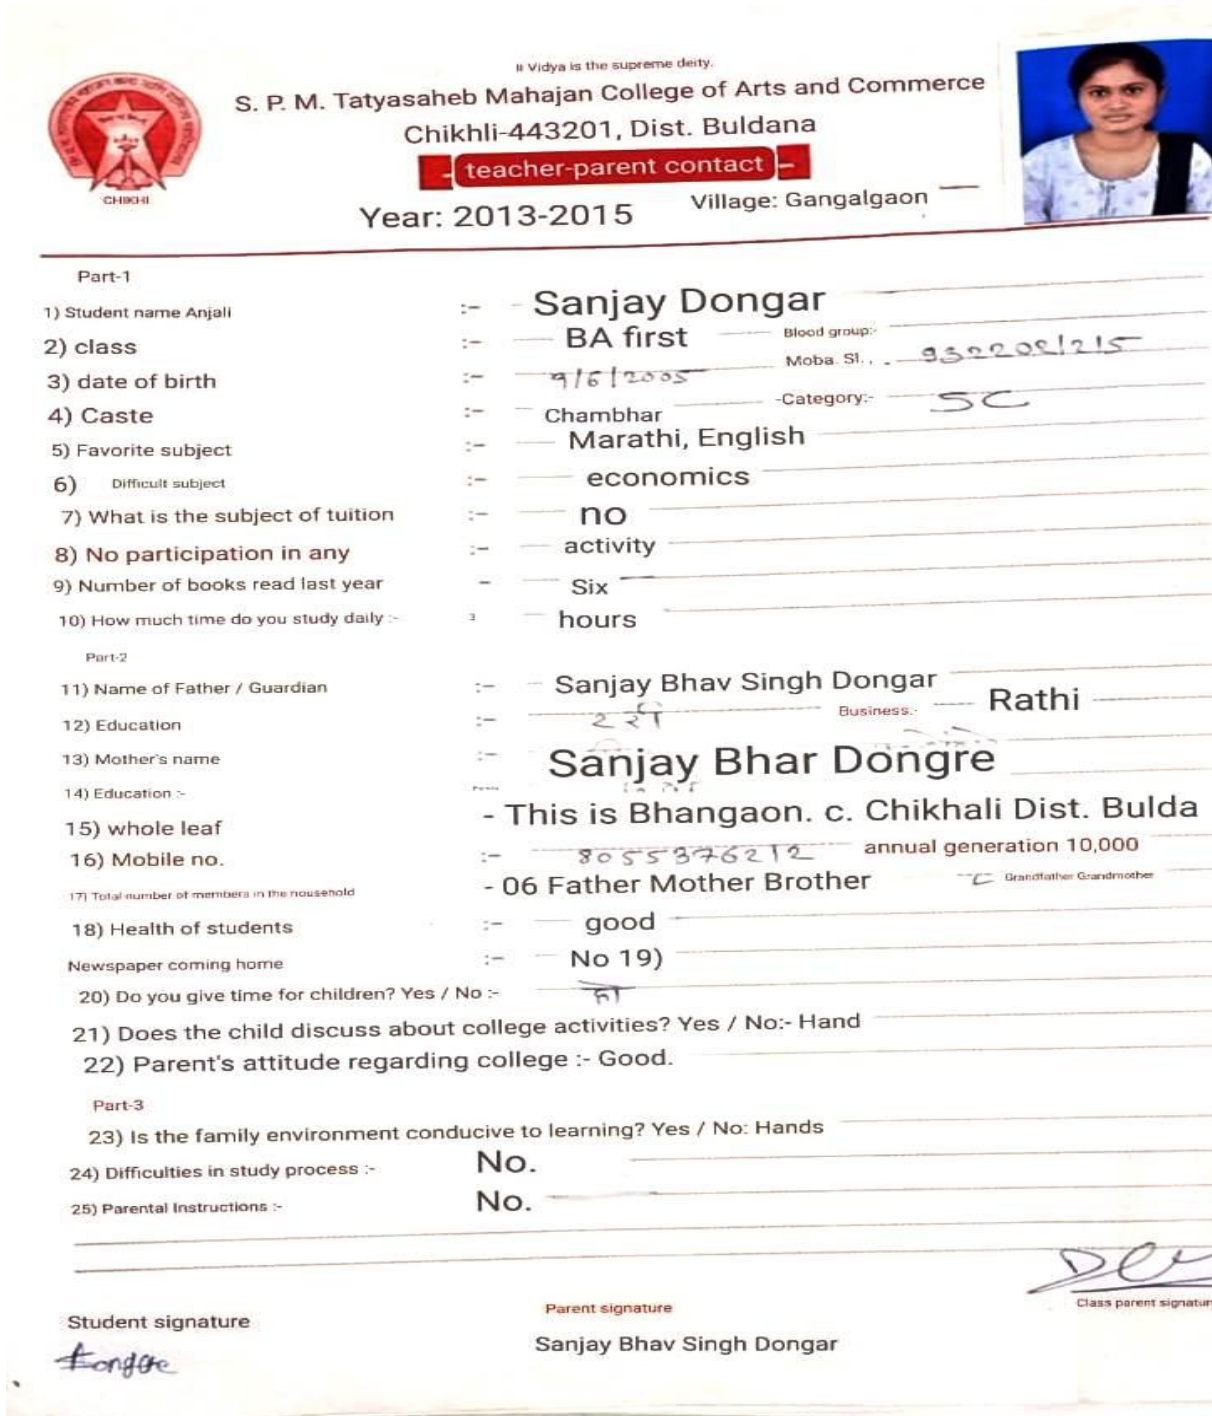 ॥ Vidya is the supreme deity.
S. P. M. Tatyasaheb Mahajan College of Arts and Commerce
Chikhli-443201, Dist. Buldana
- teacher-parent contact -
Year: 2013-2015 Village: Gangalgaon
CHIKHI
Part-1
1) Student name Anjali :- Sanjay Dongar
2) class :- BA first Blood group:-
3) date of birth :- 9/6/2005 Moba. Sl., . 9322021215
4) Caste :- Chambhar -Category:- SC
5) Favorite subject :- Marathi, English
6) Difficult subject :- economics
7) What is the subject of tuition :- no
8) No participation in any :- activity
9) Number of books read last year - Six
10) How much time do you study daily :- 3 hours
Part-2
11) Name of Father / Guardian :- Sanjay Bhav Singh Dongar
12) Education :- Business:- Rathi
13) Mother's name :- Sanjay Bhar Dongre
14) Education :-
15) whole leaf - This is Bhangaon. c. Chikhali Dist. Bulda
16) Mobile no. :- 8055376212 annual generation 10,000
17) Total number of members in the household - 06 Father Mother Brother Grandfather Grandmother
18) Health of students :- good
Newspaper coming home :- No 19)
20) Do you give time for children? Yes / No :- हो
21) Does the child discuss about college activities? Yes / No:- Hand
22) Parent's attitude regarding college :- Good.
Part-3
23) Is the family environment conducive to learning? Yes / No: Hands
24) Difficulties in study process :- No.
25) Parental Instructions :- No.
Student signature
Parent signature
Class parent signatur
Sanjay Bhav Singh Dongar